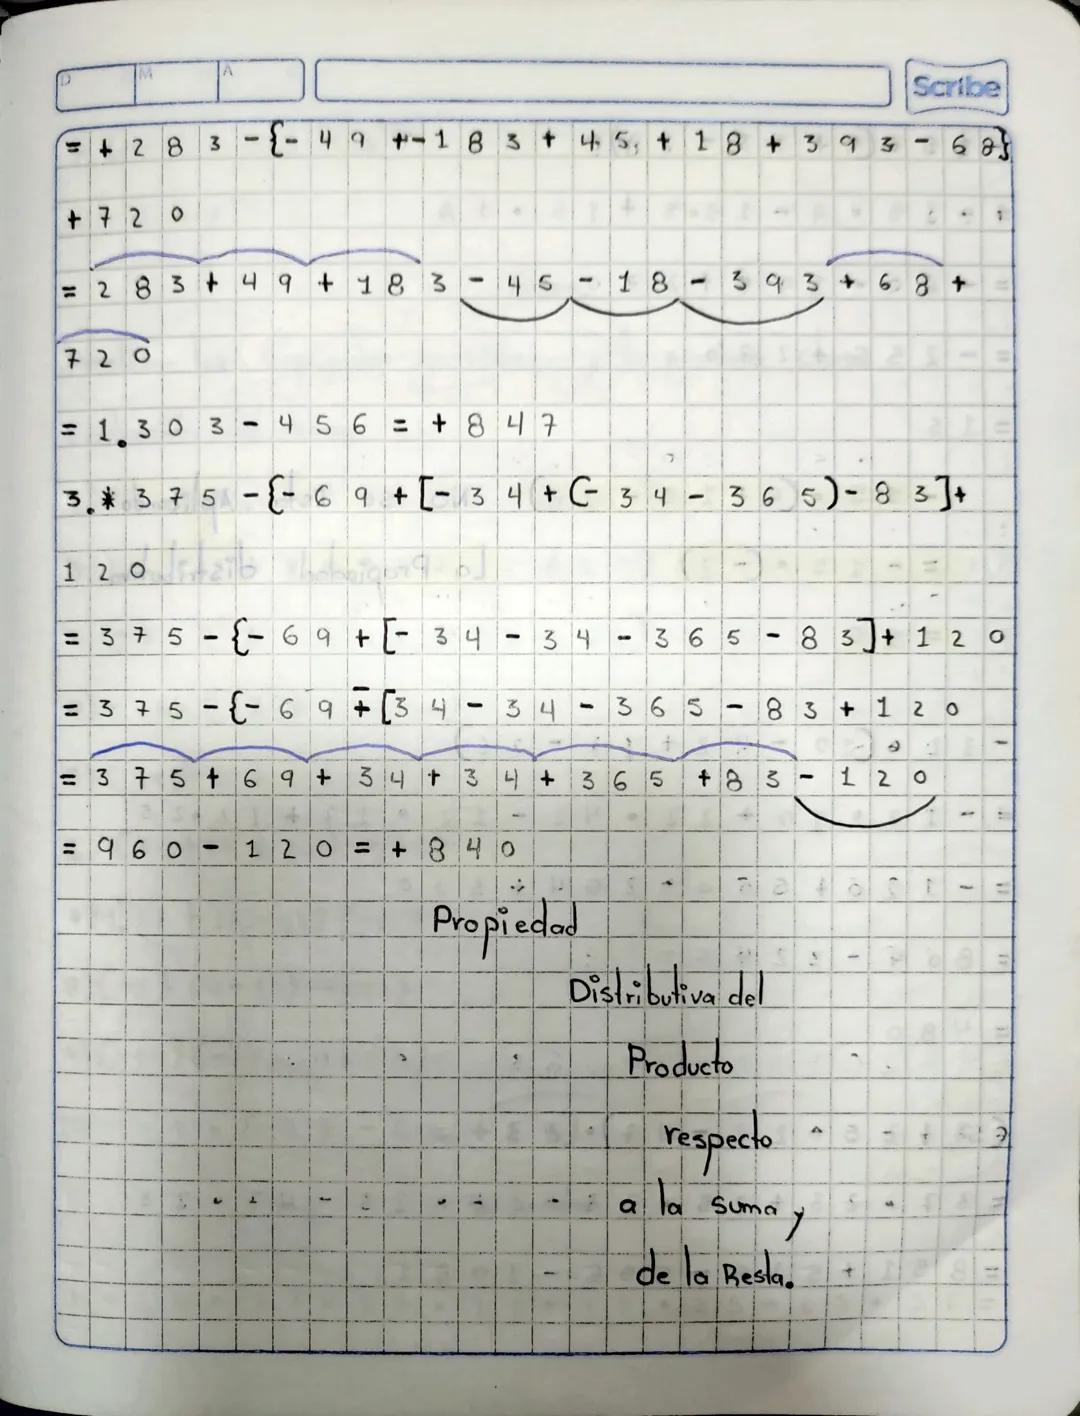 D M A Scribe
= + 2 8 3 - {- 4 9 + - 1 8 3 + 4 5, + 1 8 + 3 9 3 - 6 8}
+ 7 2 0
= 2 8 3 + 4 9 + 1 8 3 - 4 5 - 1 8 - 3 9 3 + 6 8 +
7 2 0
= 1.3 0 3 - 4 5 6 = + 8 4 7
3.* 3 7 5 - {- 6 9 + [- 3 4 + (- 3 4 - 3 6 5) - 8 3] +
1 2 0
= 3 7 5 - {- 6 9 + [- 3 4 - 3 4 - 3 6 5 - 8 3] + 1 2 0
= 3 7 5 - {- 6 9 + - [3 4 - 3 4 - 3 6 5 - 8 3 + 1 2 0
= 3 7 5 + 6 9 + 3 4 + 3 4 + 3 6 5 + 8 3 - 1 2 0
= 9 6 0 - 1 2 0 = + 8 4 0
Propiedad
Distributiva del
Producto
respecto
a la suma y
de la Resta.